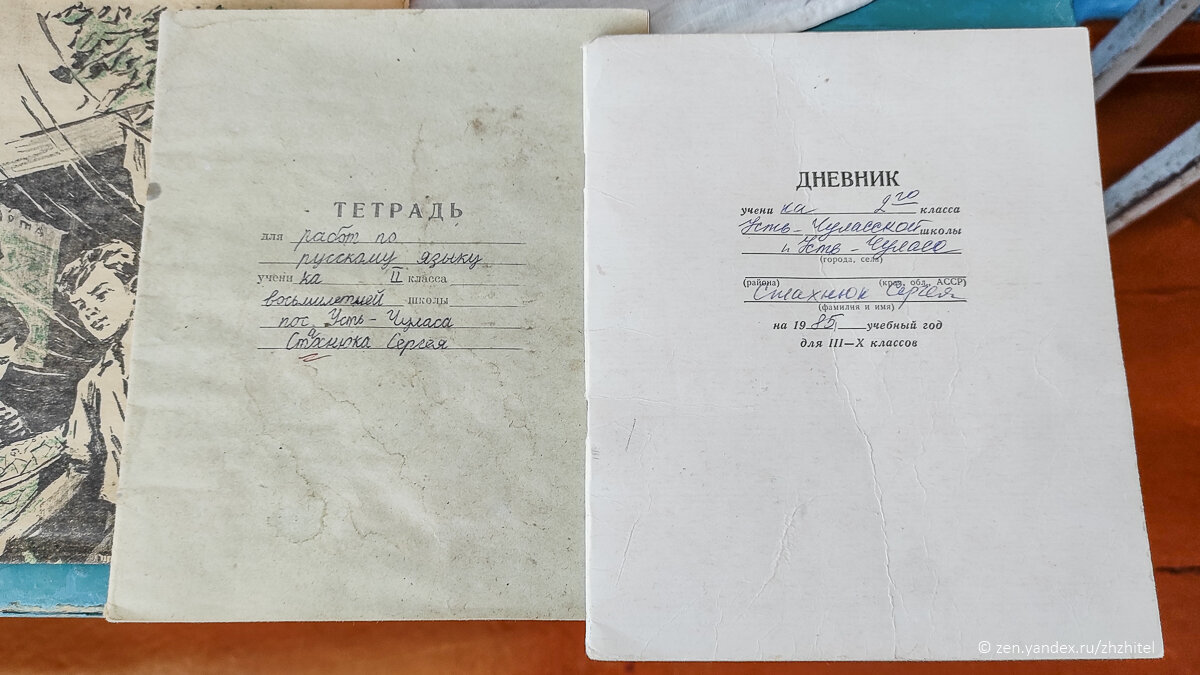 ТЕТРАДЬ
для работ по
русскому языку
учени ка II класса
восьмилетней школы
пос Усть-Чуласа
Стахнюка Сергея
ДНЕВНИК
учени ка 2го класса
Усть-Чуласской школы
п Усть-Чуласа
(города, села)
(района) (края, обл., АССР)
Стахнюк Сергея
(фамилия и имя)
на 1985 учебный год
для III—X классов
© zen.yandex.ru/zhzhitel